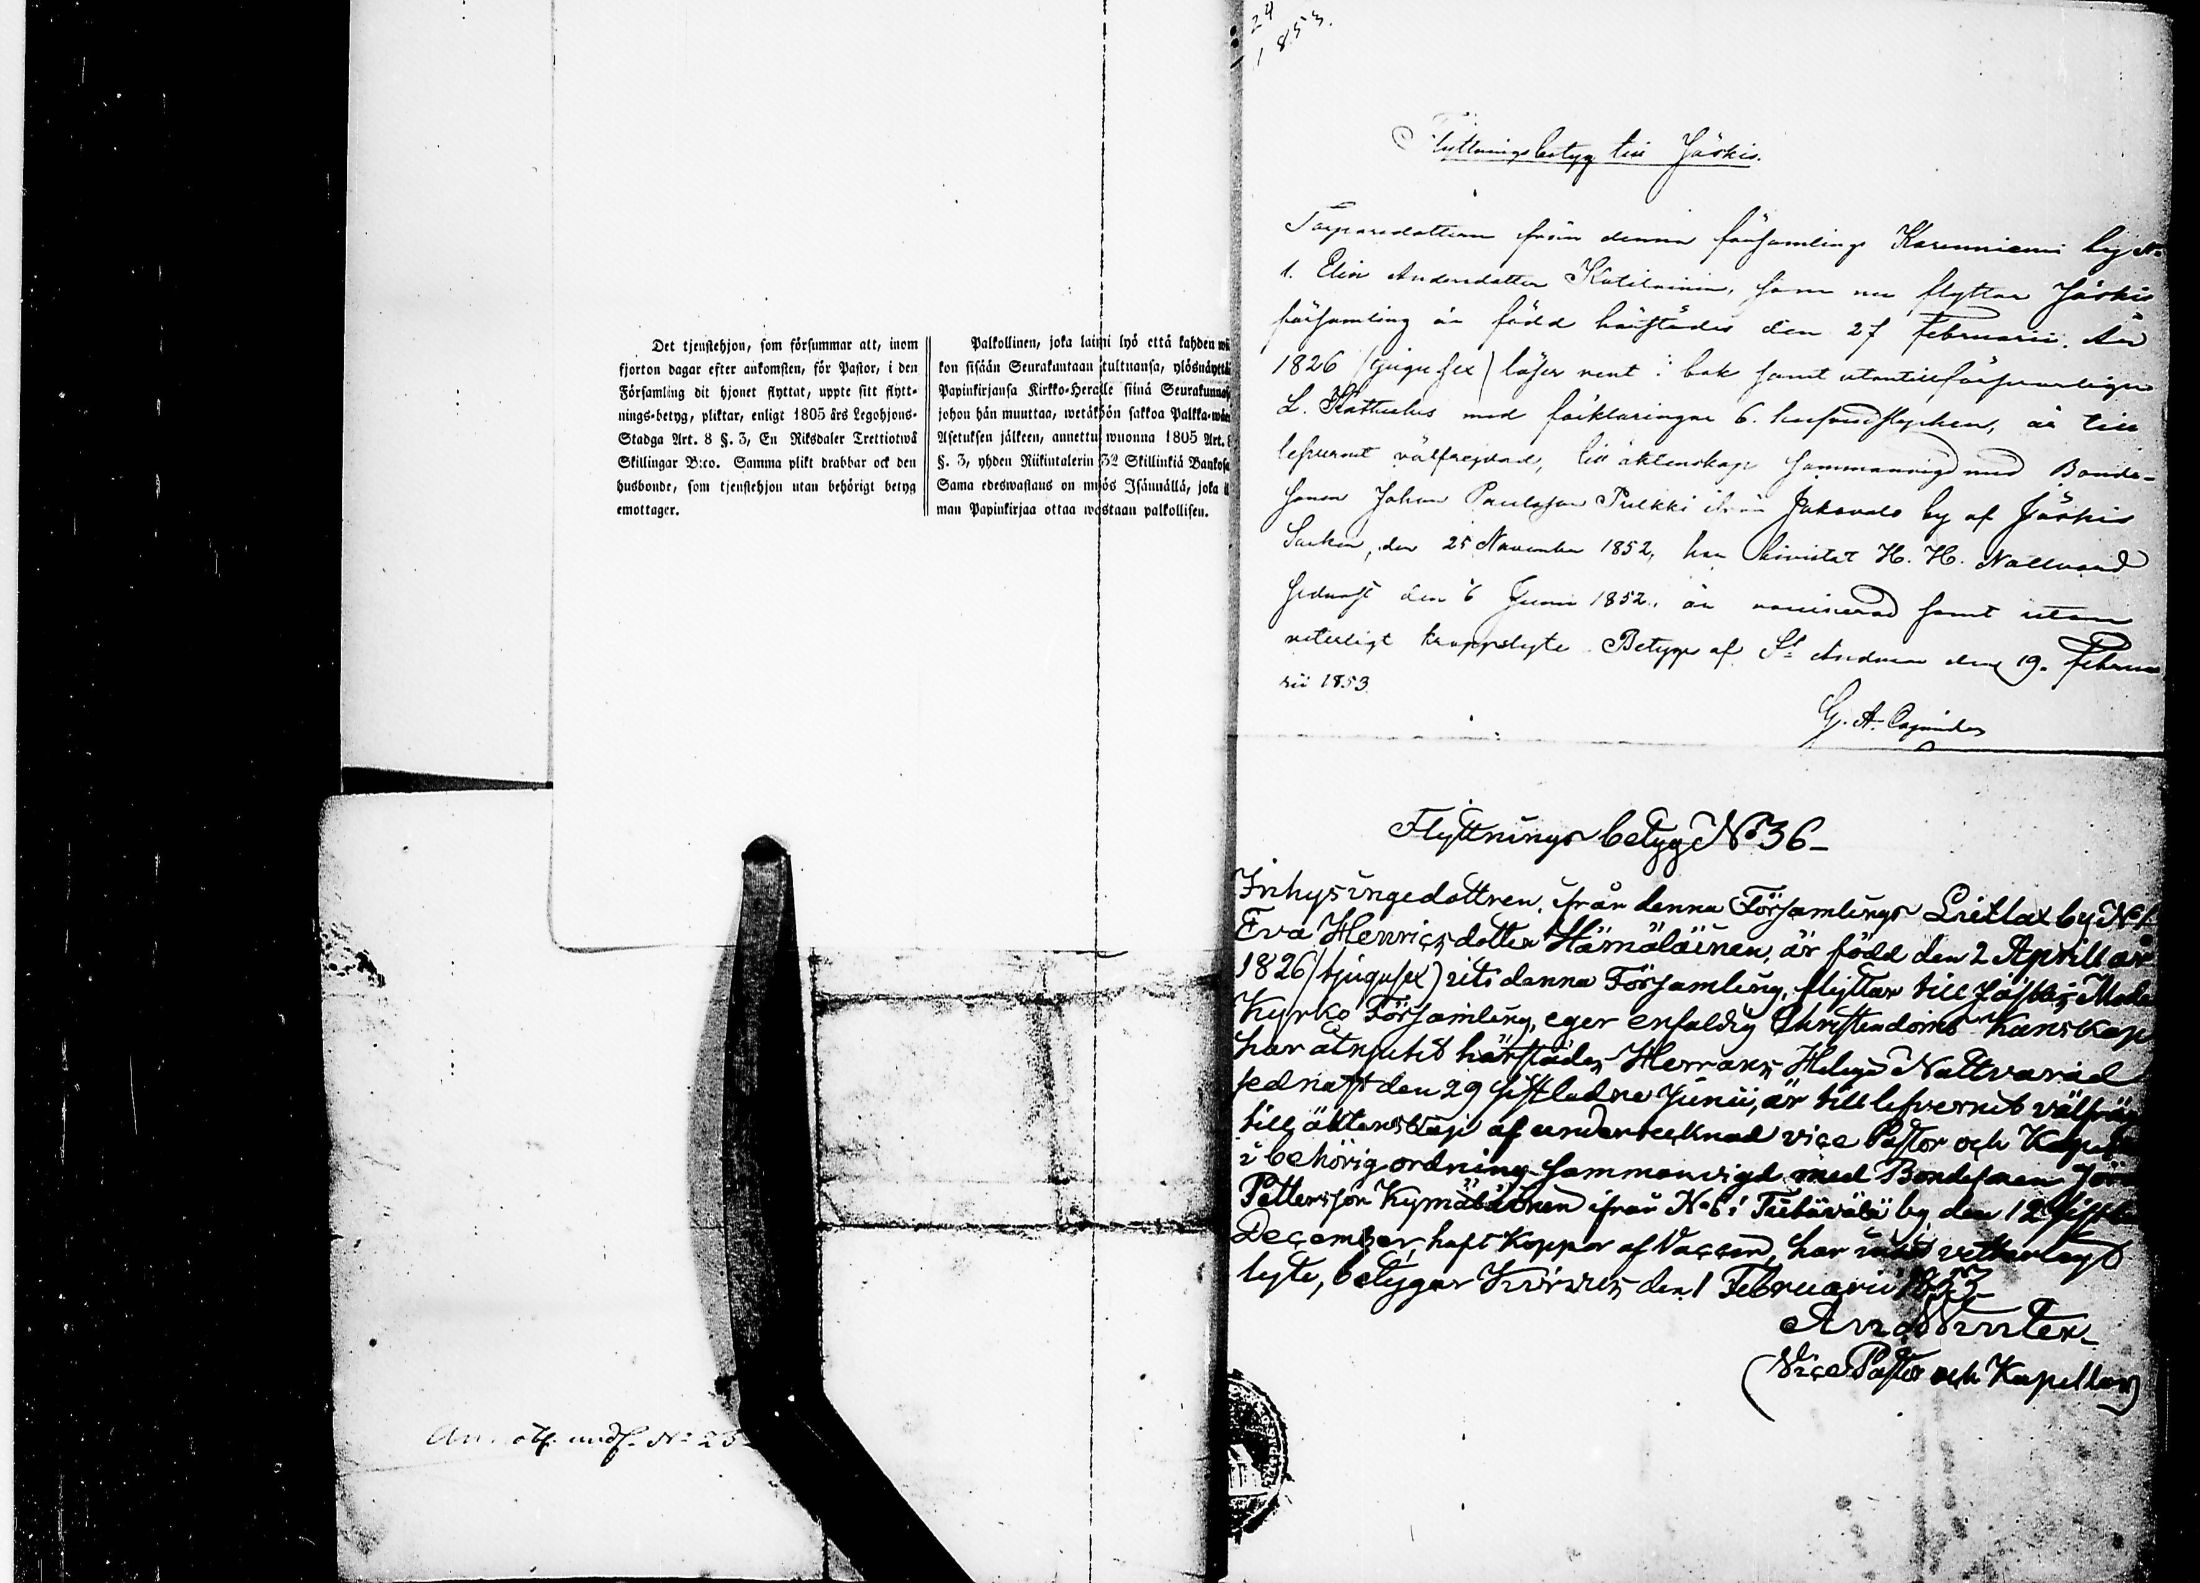 Det tjenstehjon, som försummar att, inom
fjorton dagar efter ankomsten, för Pastor, i den
Församling dit hjonet flyttat, uppte sitt flytt-
nings-betyg, pliktar, enligt 1805 års Legohjons-
Stadga Art. 8 §. 3, En Riksdaler Trettiotwå
Skillingar B:co. Samma plikt drabbar ock den
husbonde, som tjenstehjon utan behörigt betyg
emottager.
Palkollinen, joka laimi lyö että kahden
kon sisään Seurakuntaan tultuansa, ylösnäyttä
Papinkirjansa Kirkko-Herralle siinä Seurakunnas
johon hän muuttaa, wetäköön sakkoa Palkka-wäe
Asetuksen jälkeen, annettu wuonna 1805 Art. 8
§. 3, yhden Riikintalerin 32 Skillinkiä Bankosa
Sama edeswastaus on myös Isännällä, joka il
man Papinkirjaa ottaa wastaan palkollisen.
No 25
24
1853.
Flyttningsbetyg till Jäskis.
Torparedottren från denna församlings Karuniemi by No
1. Elin Andersdotter Katilainen, som nu flyttar Jäskis
församling är född härstädes den 27 Februarii. År
1826 (tjugusex) läser rent i bok samt utantill försvarligen
L. Kattules med förklaringar 6. hufvudstycken, är till
lefvernet välfrejdad, till äktenskap sammanvigd med Bonde-
sonen Johan Paulsson Pulkki ifrån Jakovala by af Jäskis
Socken, den 25 November 1852, har bivistat H. H. Nattvard
sednast den 6 Junii 1852, är vaccinerad samt utan
veterligt kroppslyte. Betygar af St Andreæ den 19. Februa
rii 1853.
G. A. Cajander
Flyttnings betyg No 36_
Inhysingedottren, ifrån denna Församlings Lietlax by No 1
Eva Henricsdotter Hämäläinen, är född den 2 April år
1826 (tjugusex) uti denna Församling, flyttar till Jäskis Moder
Kyrko Församling, eger enfaldig Christendoms Kunskap
har åtnjutit härstädes Herrans Helga Nattvard
sednast den 29 sistledne Junii, är till lefvernet välfräg
till äktenskap af undertecknad vice Pastor och Kapella
i behörig ordning sammanvigd med Bondesonen Jöra
Pettersson Kymäläinen ifrån No 6 i by den 12 sistle
December, haft Koppor af Vaccin, har intet vetterligt
lyte, betygar Kirvus den 1 Februarii 1853_
And Winter
(Vice Pastor och Kapellan)